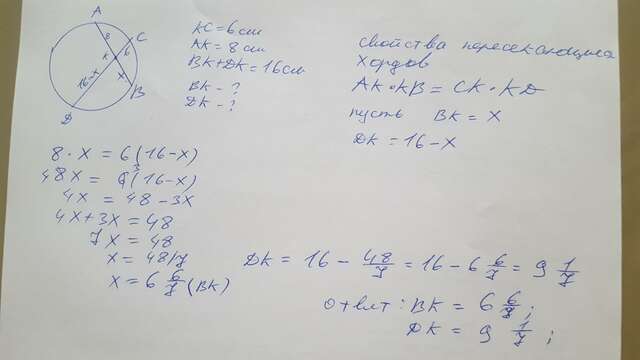 A
8
C
K
6
16-x
x
B
D
KC = 6 cm
AK = 8 cm
BK + DK = 16 cm
BK - ?
DK - ?
свойства пересекающися
хордов
AK · KB = CK · KD
пусть BK = x
DK = 16 - x
8 · x = 6 (16 - x)
48x = 6 3 (16 - x)
4x = 48 - 3x
4x + 3x = 48
7x = 48
x = 48/7
x = 6 6/7 (BK)
DK = 16 - 48/7 = 16 - 6 6/7 = 9 1/7
ответ: BK = 6 6/7;
DK = 9 1/7;